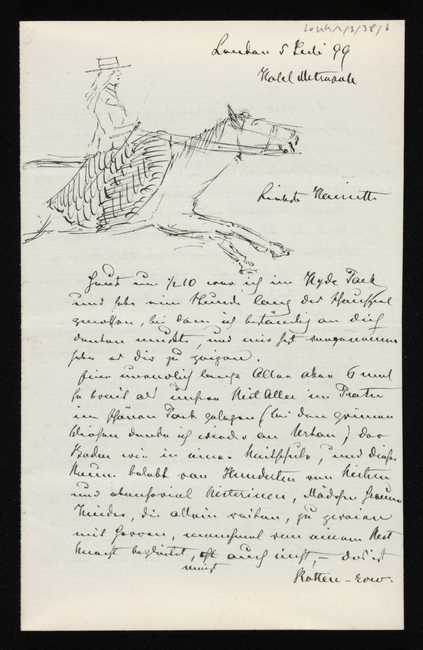 London 5 Juli 99
Hotel Metropole
Liebste Henriette
Heut um ½10 war ich im Hyde Park
und habe eine Stunde lang das Schauspiel
genossen, bei dem ich beständig an dich
denken mußte, und mir fest vorgenommen
habe es dir zu zeigen.
Eine unendlich lange Allee aber 6 mal
so breit als unsere Reit Allee im Prater
im schönen Park gelegen (bei den grünen
Wiesen denke ich wieder an Urban) Der
Boden wie in einer Reitschule, und dieser
Raum belebt von Hunderten von Reitern
und ebensoviel Reiterinen, Mädchen Frauen
Kinder, die allein reiten, zu zweien
mit Herren, manchmal von einem Reit
knecht begleitet, oft auch nicht, – das ist
meist
Rotten-row.